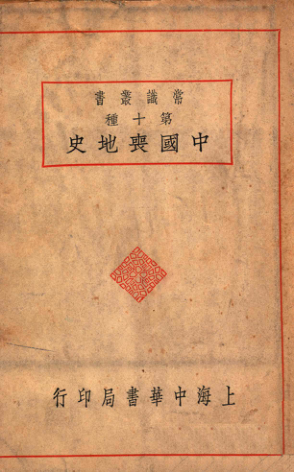 常識叢書
第十種
中國喪地史
上海中華書局印行